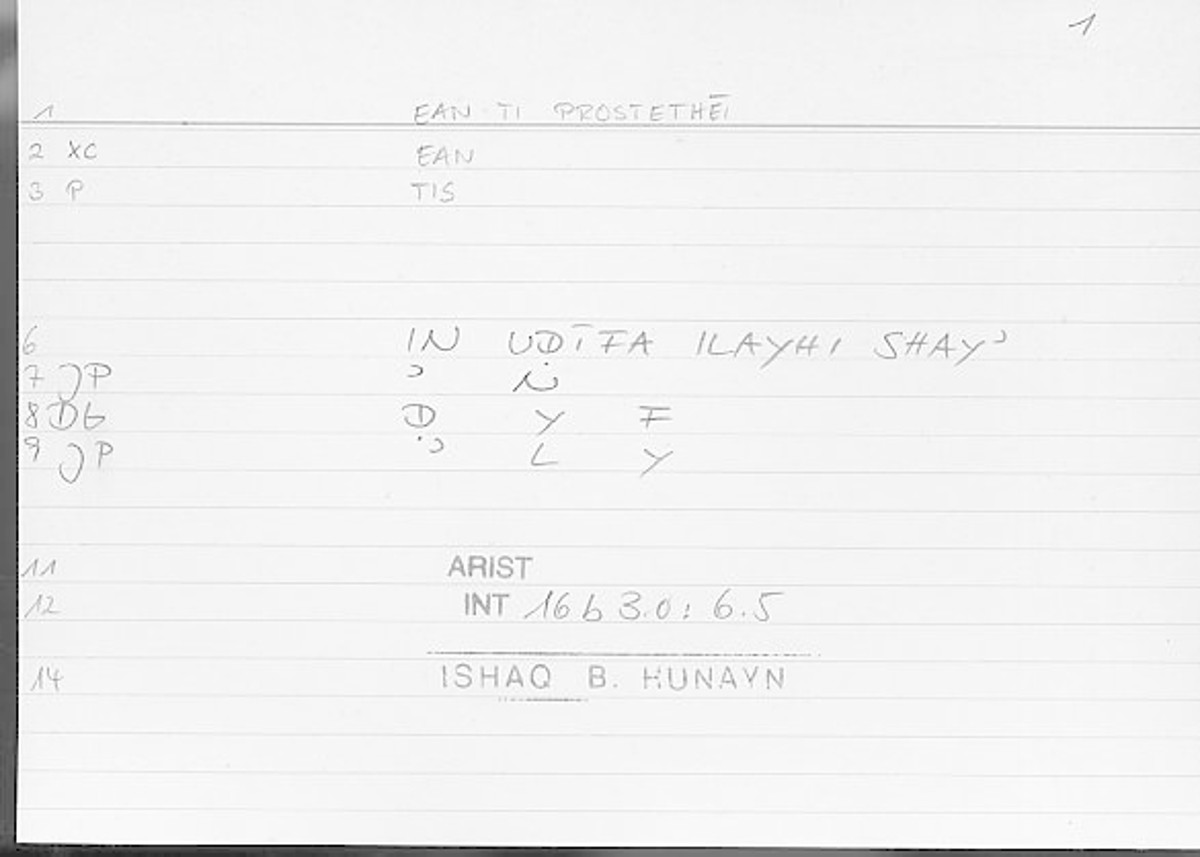 1
1 EAN TI PROSTETHĒI
2 XC EAN
3 P TIS
6 IN UḌĪFA ILAYHI SHAYʾ
7 JP ʾ N
8 Db Ḍ Y F
9 JP ʾ L Y
11 ARIST
12 INT 16 b 30 : 6.5
14 ISHAQ B. HUNAYN